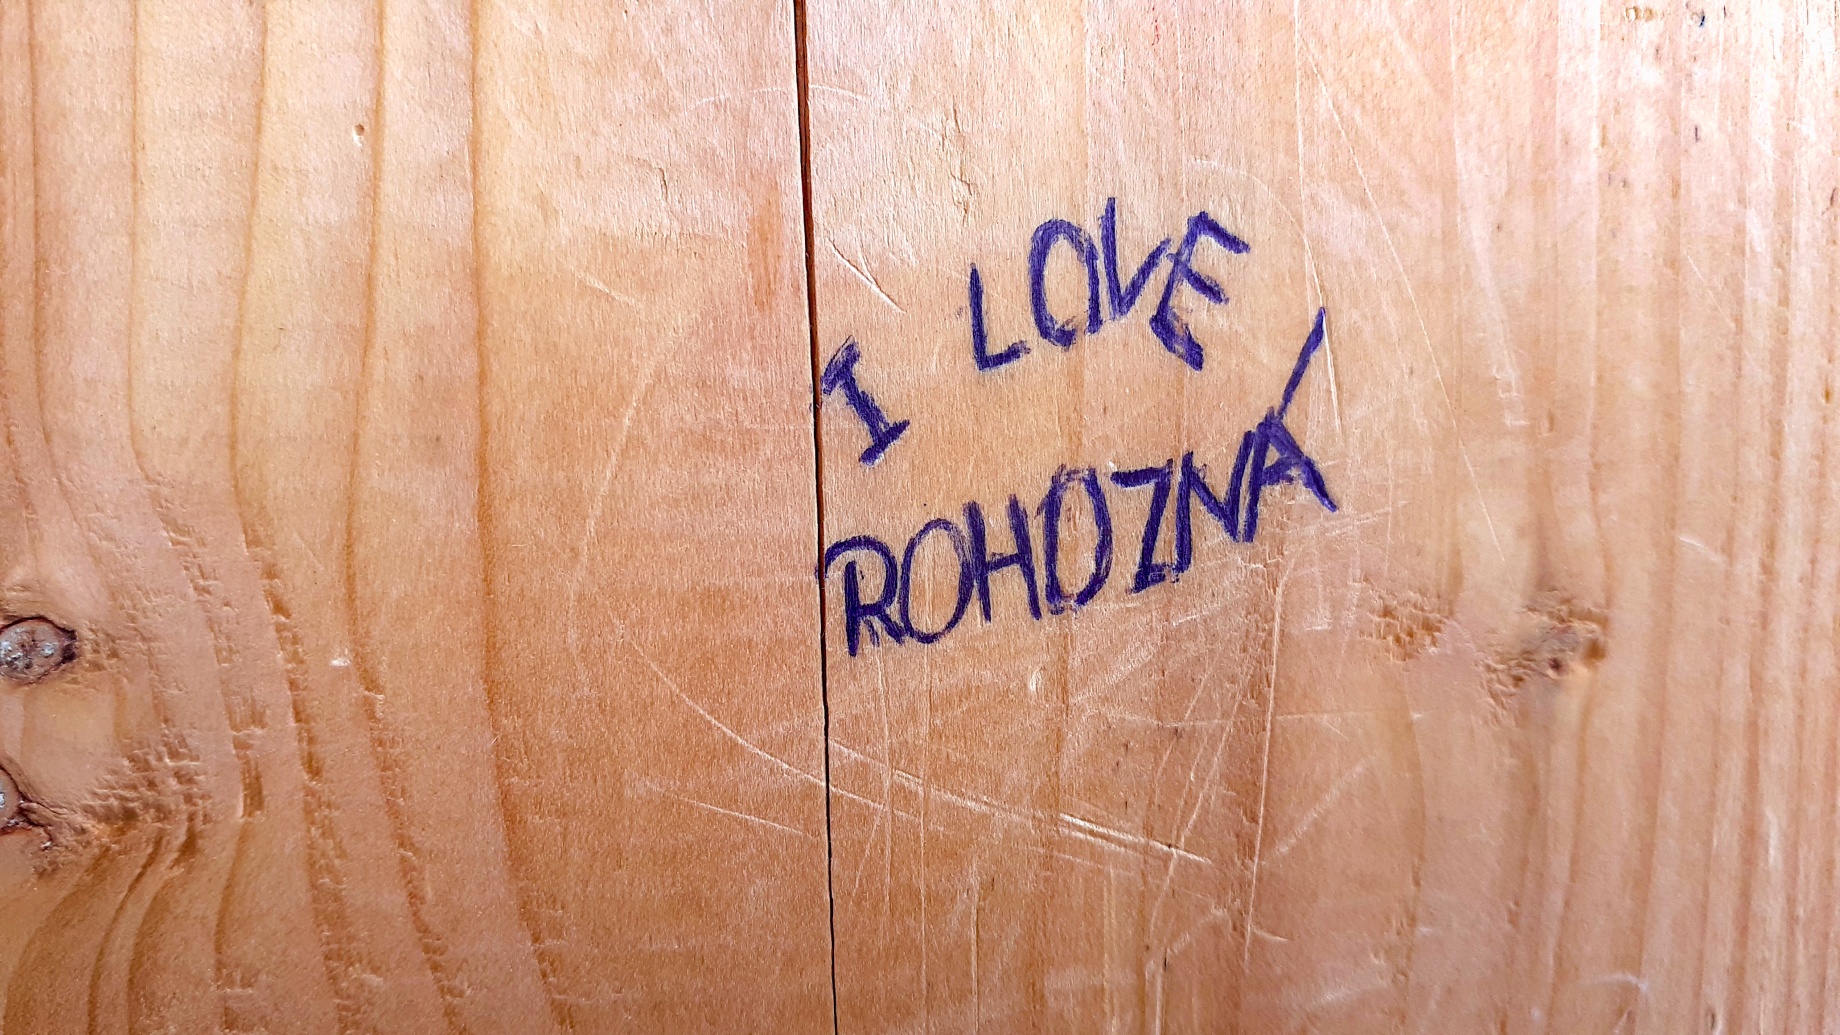 I LOVE
ROHOZNÁ